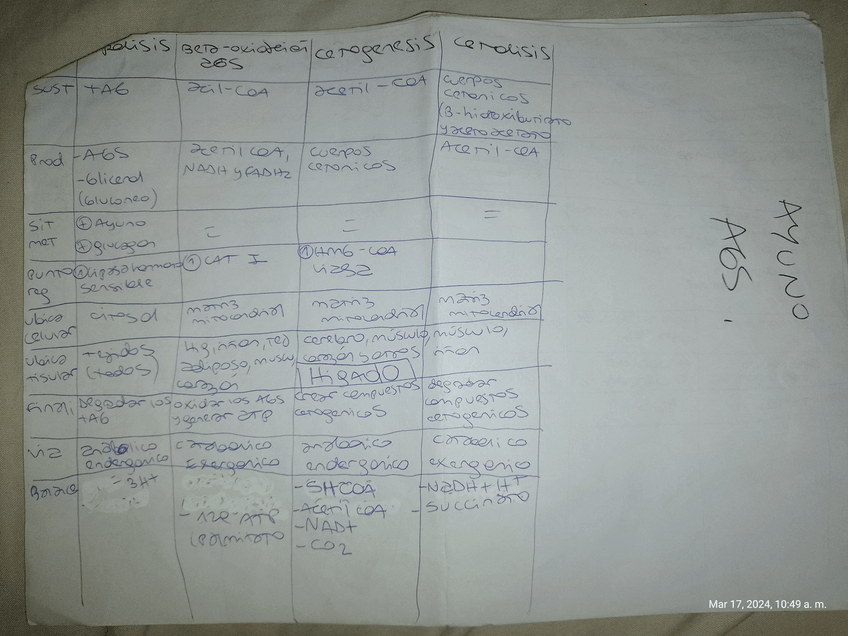 polisis Beta-oxidación AGS cetogenesis cetolisis
sust +AG acil-COA acetil-COA cuerpos
cetonicos
(B-hidroxibutirato
y acetoacetato
Prod -AGS acetil COA, cuerpos Acetil-COA
-Glicerol NADH y FADH2 cetonicos
(Gluconeo)
sit ⊕ Ayuno = = =
met ⊕ glucagon
punto ① lipasa hormono ① CAT I ① HMG-COA
reg sensible liasa
ubica citosol matriz matriz matriz
celular mitocondrial mitocondrial mitocondrial
ubica tejidos Hig, riñon, tej cerebro, músculo, músculo,
tisular (todos) adiposo, musc, corazón y otros riñon
corazón HIGADO
Finali Degradar los oxidar los AGS crear compuestos degradar
+AG y generar ATP cetogenicos compuestos
cetogenicos
via anabolico catabolico anabolico catabolico
endergonico exergonico endergonico exergonico
Balance - 3H+ -SHCOA -NADH + H+
-Acetil COA -Succinato
-129 ATP -NAD+
(palmitato -CO2
AYUNO
AGS.
Mar 17, 2024, 10:49 a. m.